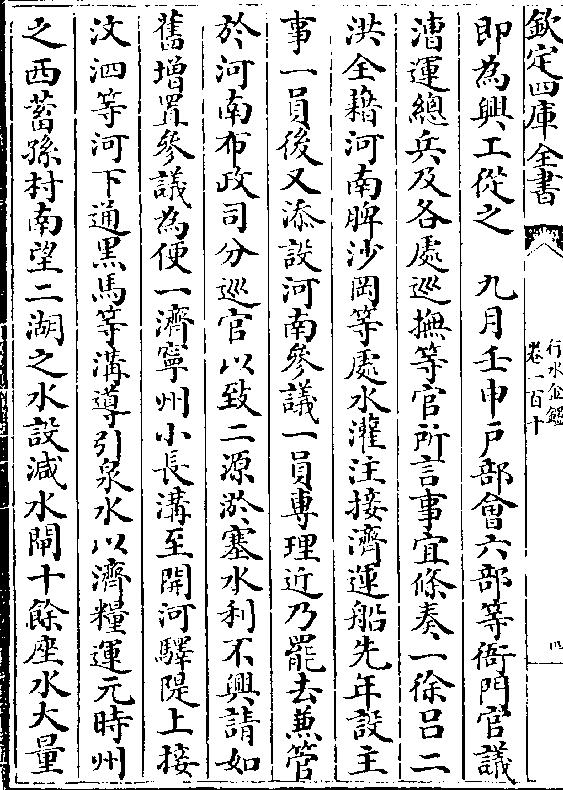 欽定四庫全書
行水金鑑
卷一百十
四
即為興工從之　九月壬申戶部會六部等衙門官議
漕運總兵及各處巡撫等官所言事宜條奏一徐呂二
洪全藉河南脾沙岡等處水灌注接濟運船先年設主
事一員後又添設河南參議一員專理近乃罷去兼管
於河南布政司分巡官以致二源淤塞水利不興請如
舊增置參議為便一濟寧州小長溝至開河驛隄上接
汶泗等河下通黑馬等溝導引泉水以濟糧運元時州
之西蓄孫村南望二湖之水設減水閘十餘座水大量